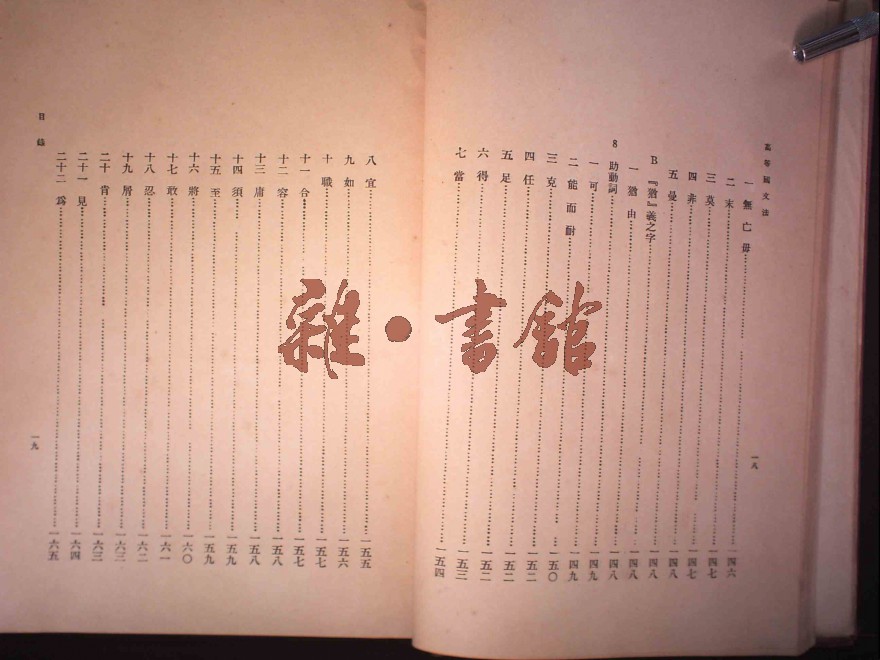 高等國文法
一 無 亡 毋……一四六
二 末……一四七
三 莫……一四七
四 非……一四八
五 曼……一四八
B 『猶』義之字……一四八
一 猶 由……一四八
8 助動詞……一四九
一 可……一四九
二 能 而 耐……一五〇
三 克……一五二
四 任……一五二
五 足……一五二
六 得……一五三
七 當……一五四
一八
八 宜……一五五
九 如……一五六
十 職……一五七
十一 合……一五七
十二 容……一五八
十三 庸……一五八
十四 須……一五九
十五 至……一五九
十六 將……一六〇
十七 敢……一六一
十八 忍……一六二
十九 屑……一六二
二十 肯……一六三
二十一 見……一六四
二十二 爲……一六五
目錄
一九
雜·書館